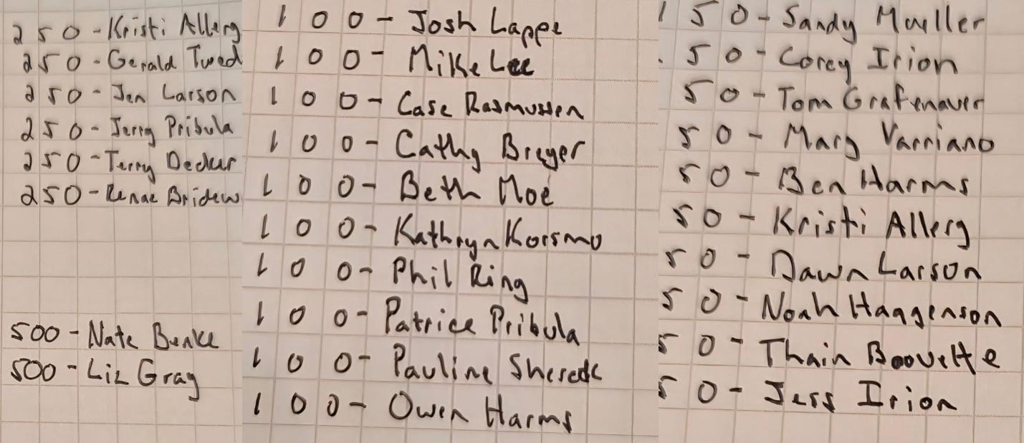 250-Kristi Allerg
250-Gerald Twed
250-Jen Larson
250-Jerry Pribula
250-Terry Decker
250-Renae
500-Nate
500-Liz Gray
100-Josh Lappe
100-Mike Lee
100-Case Rasmussen
100-Cathy Breyer
100-Beth Moe
100-Kathryn Korsmo
100-Phil Ring
100-Patrice Pribula
100-Pauline
100-Owen Harms
50-Sandy Mueller
50-Corey Irion
50-Tom Grafenauer
50-Mary Varriano
50-Ben Harms
50-Kristi Allerg
50-Dawn Larson
50-Noah Haggenson
50-Thain
50-Jess Irion